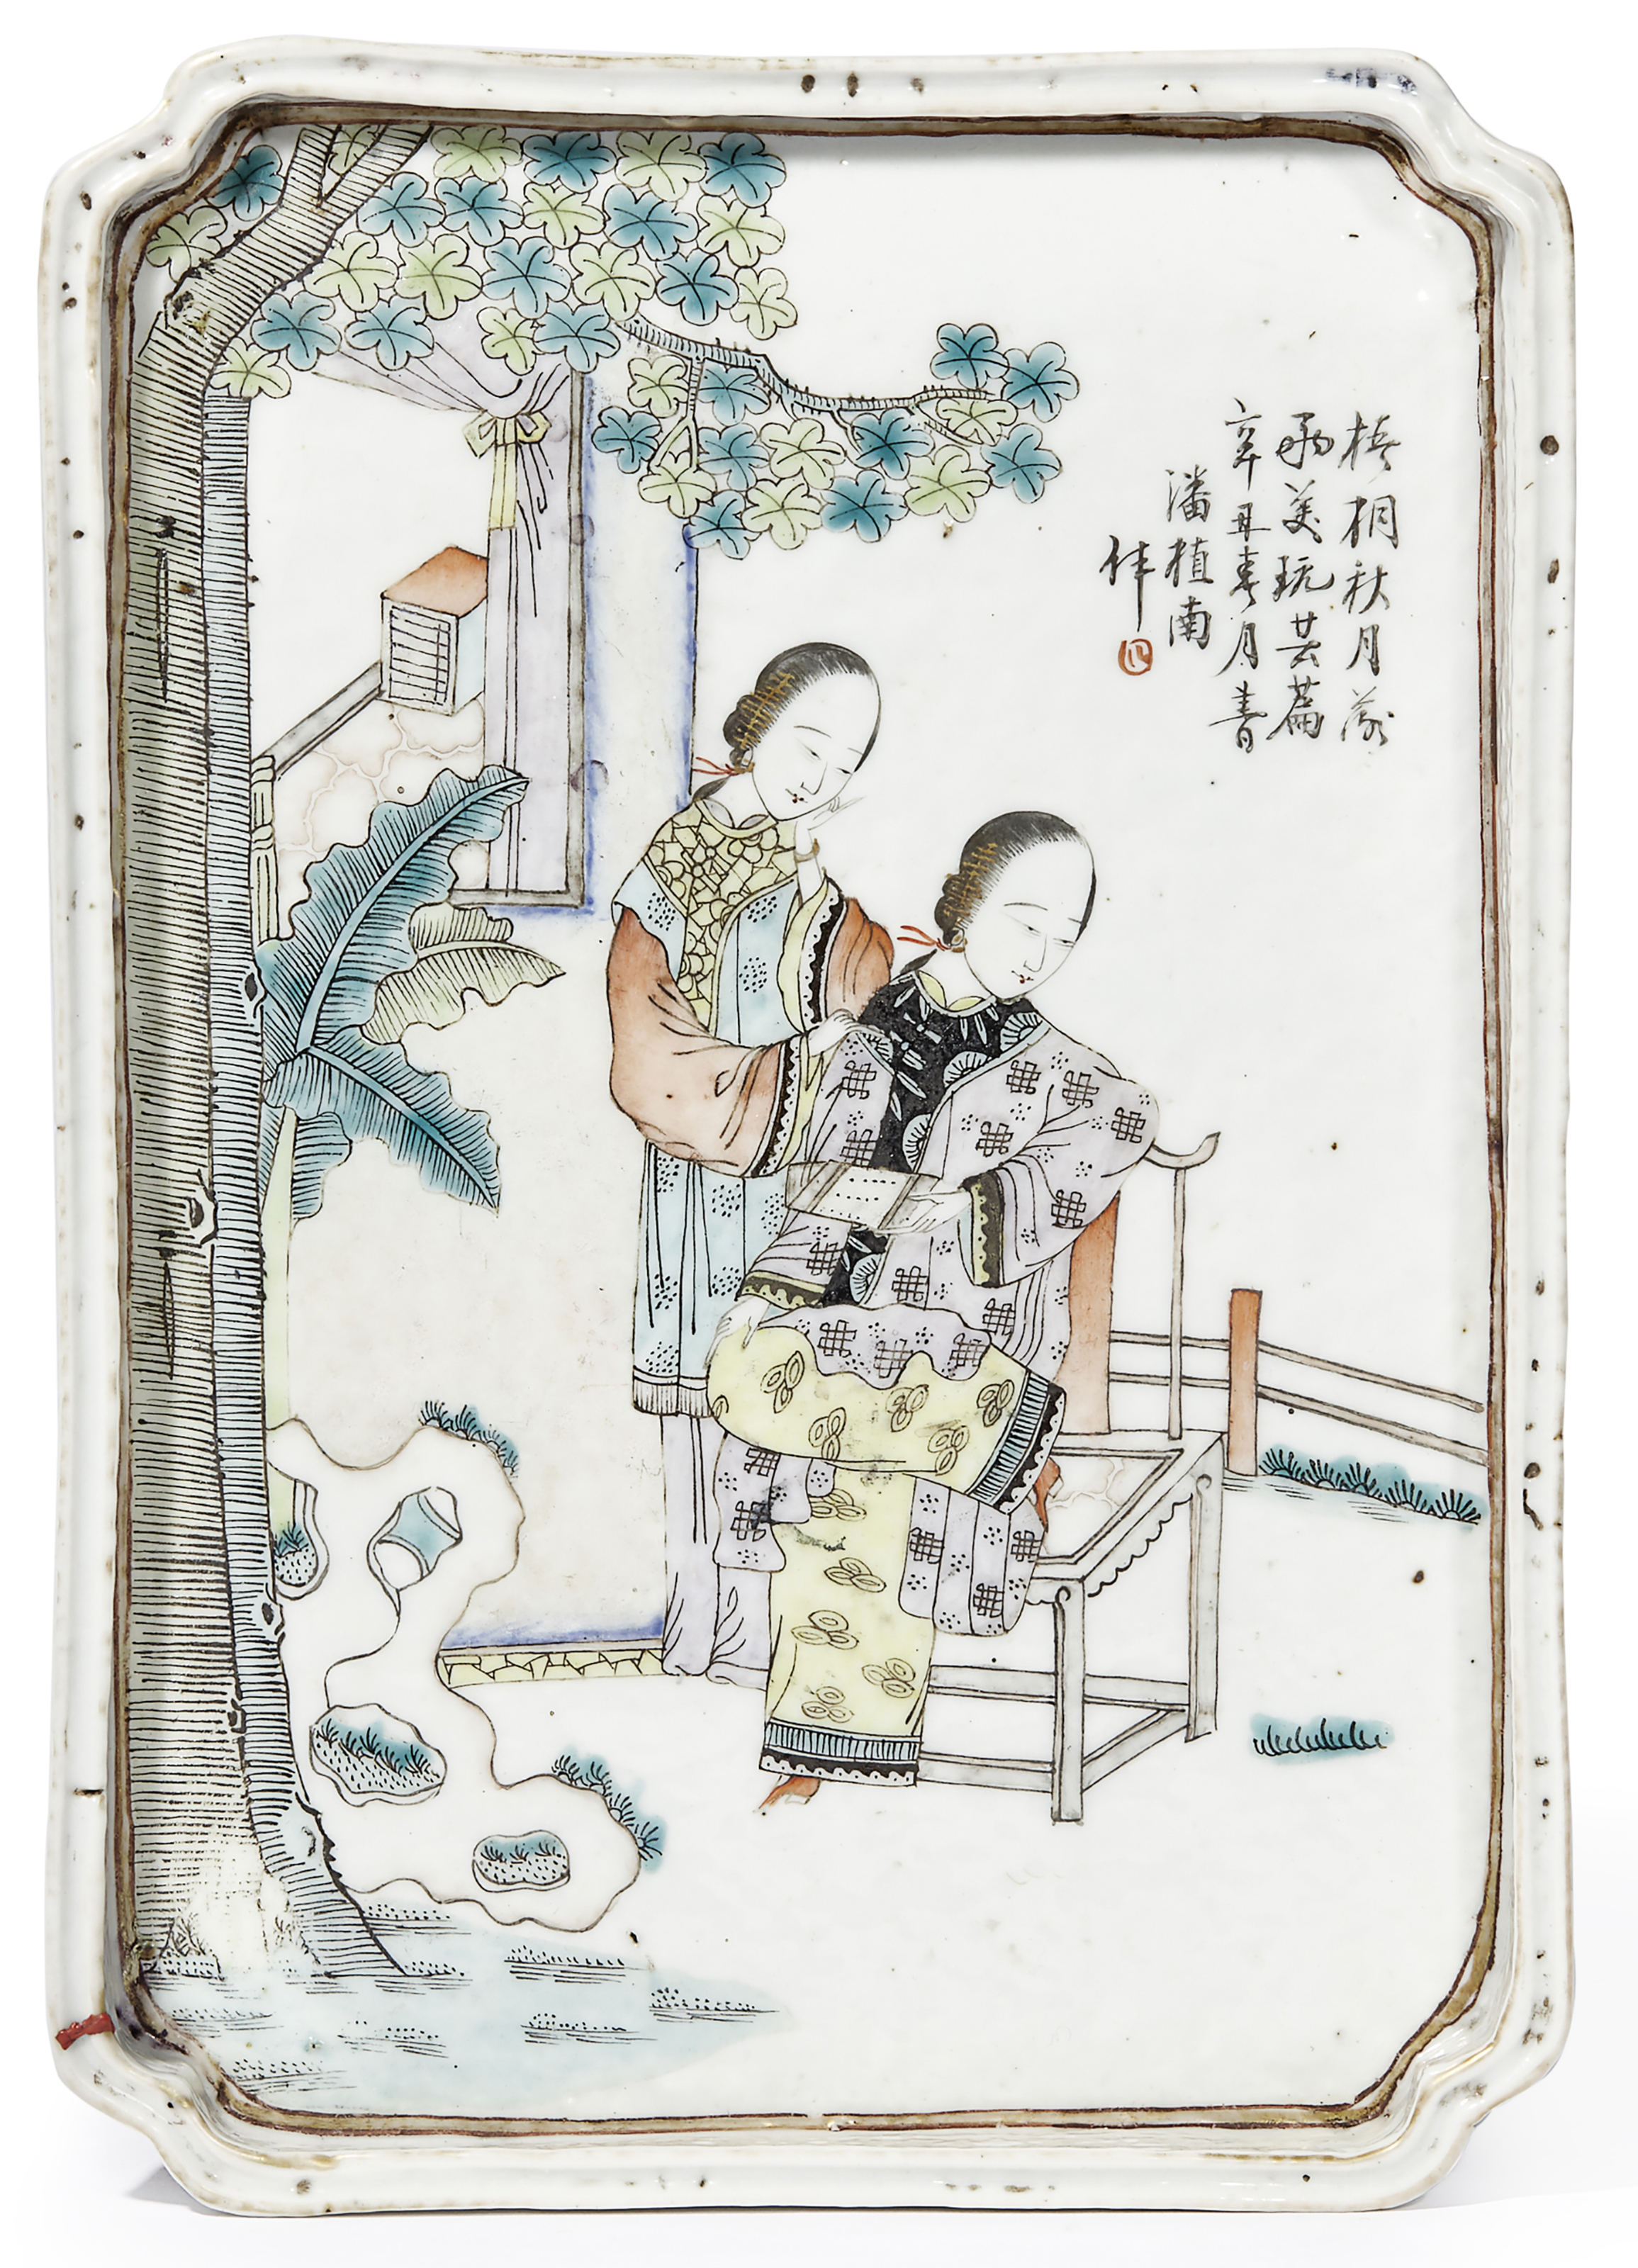 梧桐秋月落
兩美玩芸篇
辛丑春月書
潘植南
作